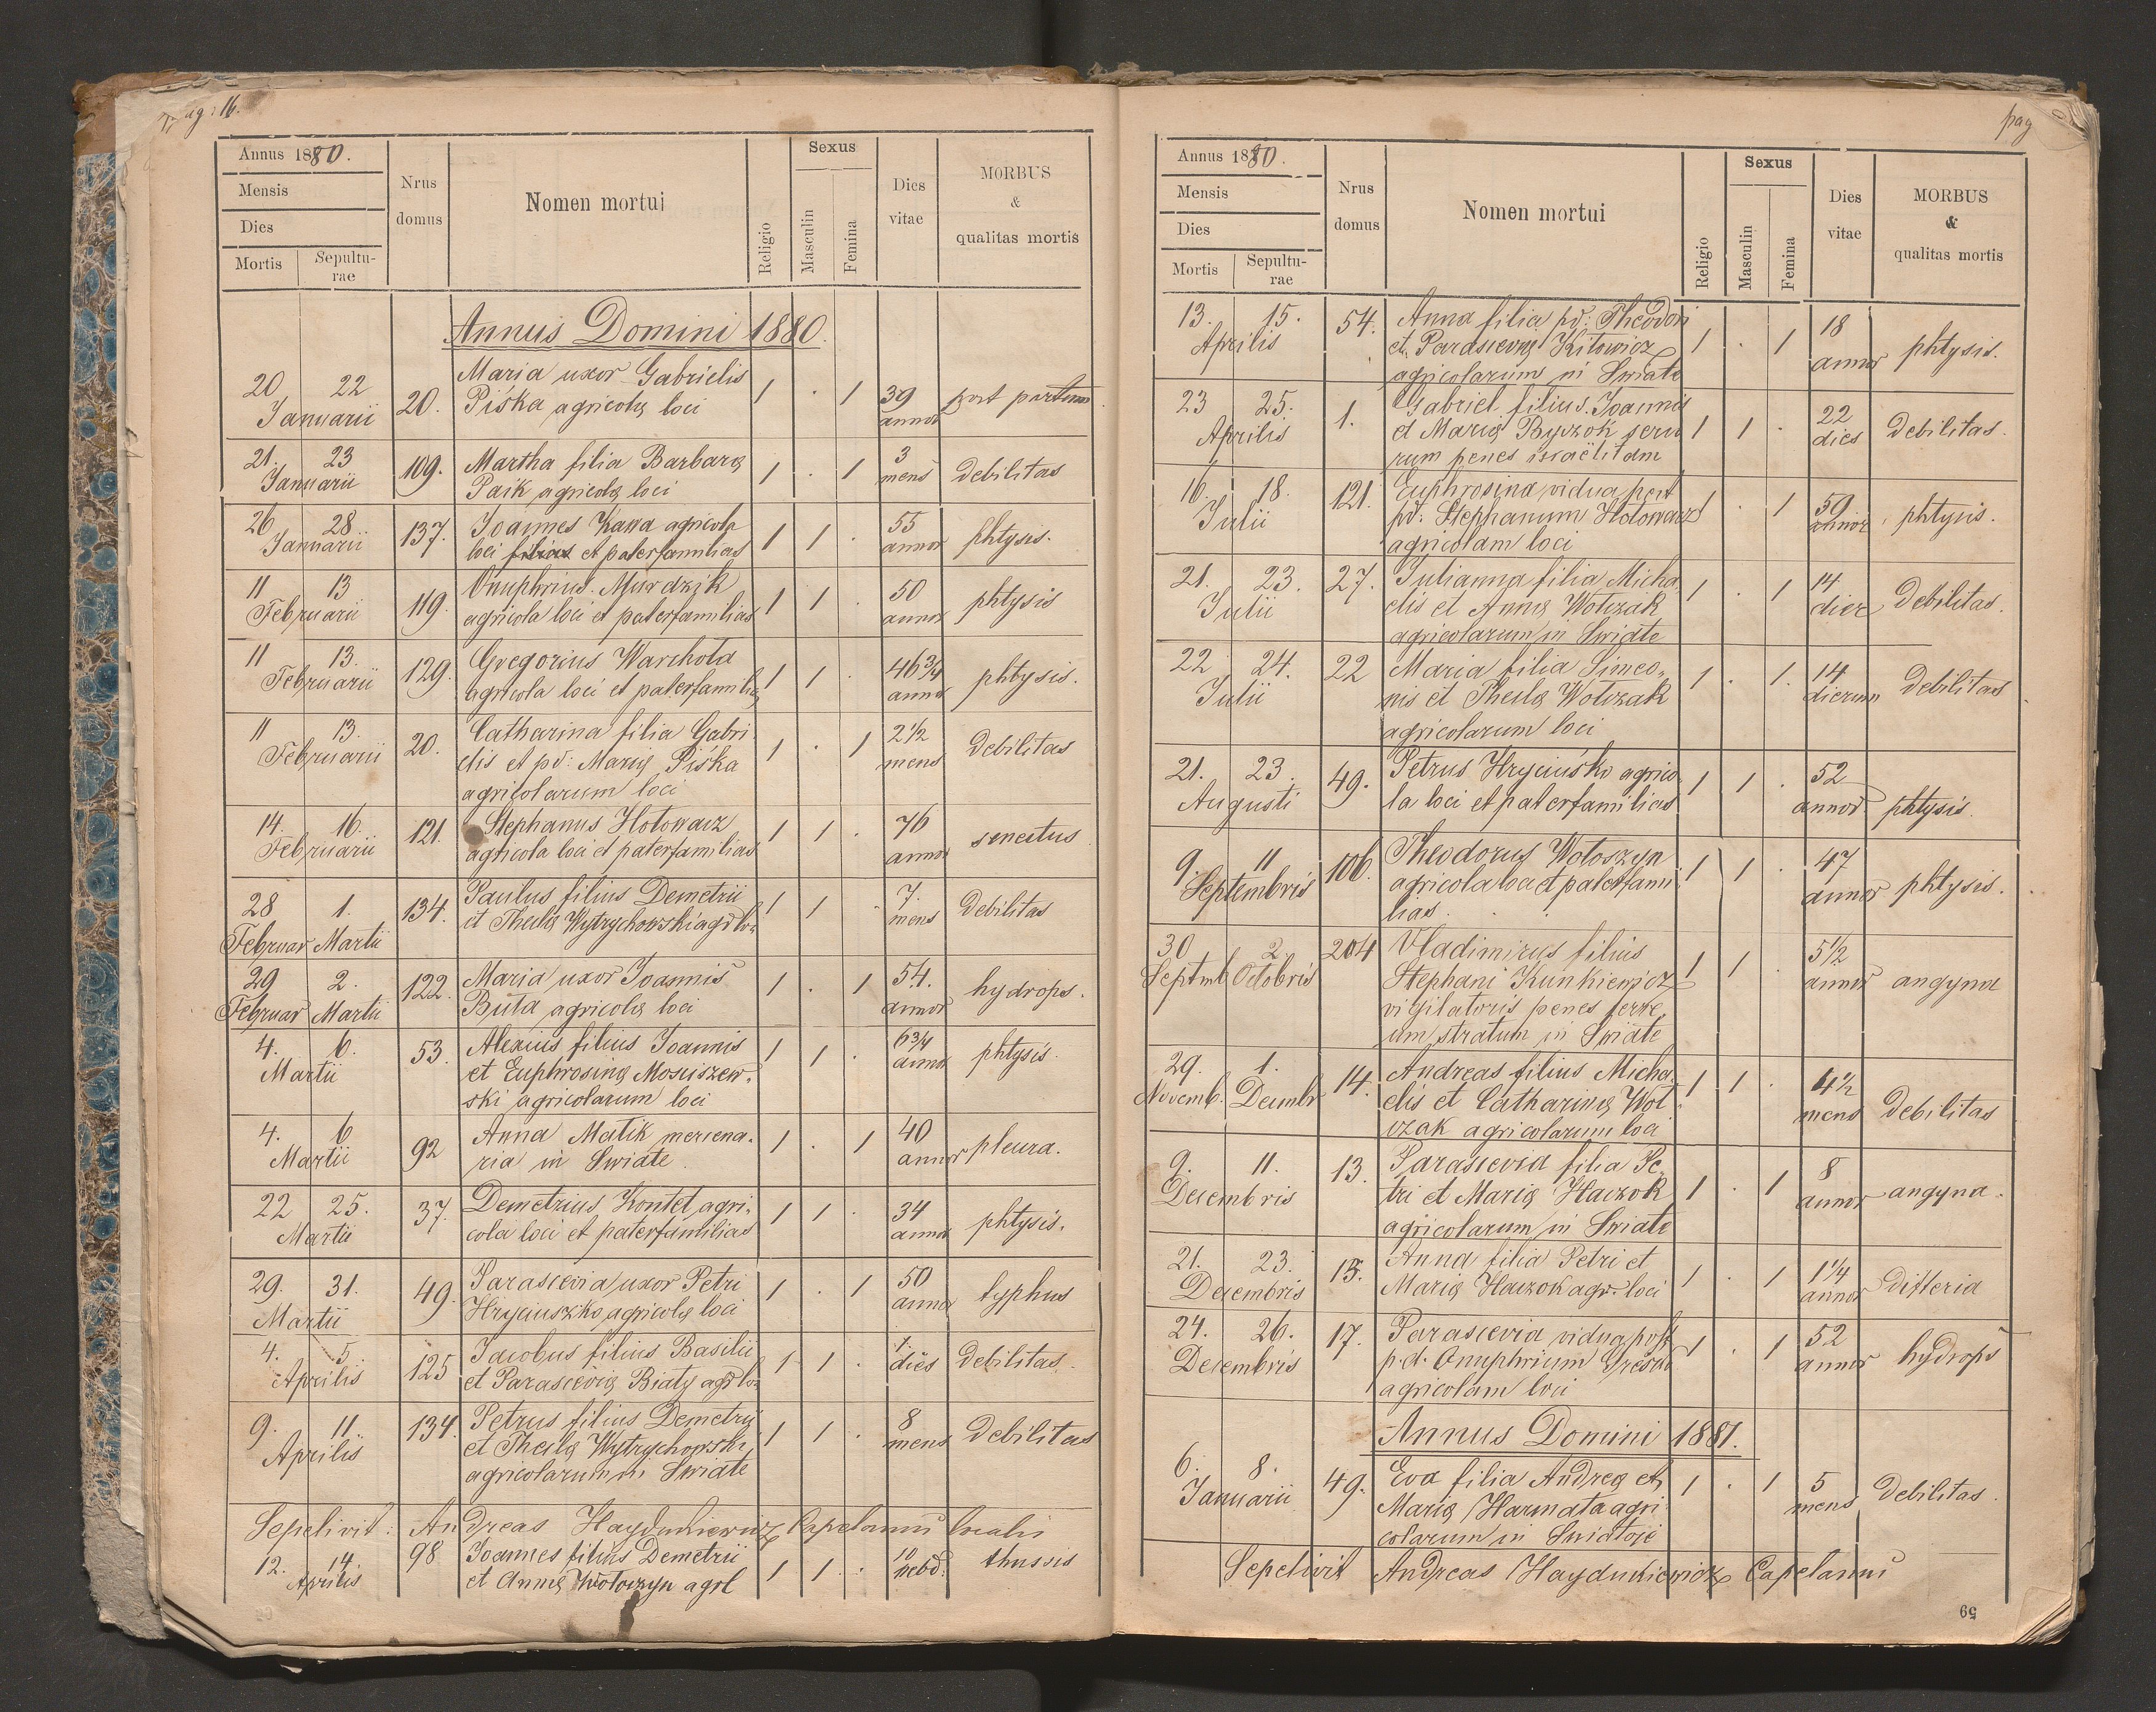 Pag: 16.
Annus 1880.
Mensis
Dies
Mortis
Sepultu-
rae
Nrus
domus
Nomen mortui
Religio
Sexus
Masculin
Femina
Dies
vitae
MORBUS
&
qualitas mortis
Annus Domini 1880.
20 22 Januarii 20. Maria uxor Gabrielis 1 . 1 39 annor post partum
Piśka agricolę loci
21. 23 Januarii 109. Martha filia Barbarę 1 . 1 3 mens debilitas
Paik agricolę loci
26 28. Januarii 137. Joannes Kawa agricola 1 1 . 55 annor phtysis.
loci filius et paterfamilias
11 13 Februarii 119. Onuphrius Murdzik 1 1 . 50 annor phtysis
agricola loci et paterfamilias
11 13. Februarii 129. Gregorius Warchoła 1 1 . 46 3/4 annor phtysis.
agricola loci et paterfamilias
11 13. Februarii 20. Catharina filia Gabri 1 . 1 2 1/2 mens debilitas
elis et pd: Marię Piśka
agricolarum loci
14. 16. Februarii 121. Stephanus Hołowacz 1 1 . 76 annor senectus
agricola loci et paterfamilias
28 Februar 1. Martii 134. Paulus filius Demetrii 1 1 . 7. mens debilitas
et Theclę Wytrychowski agr lo:
29 Februar 2. Martii 122. Maria uxor Joannis 1 . 1 54. annor hydrops.
Buła agricolę loci
4. 6. Martii 53. Alexius filius Joannis 1 1 . 6 3/4 annor phtysis.
et Euphrosinę Mosciszew-
ski agricolarum loci
4. 6 Martii 92 Anna Matik mercena- 1 . 1 40 annor pleura.
ria in Swiate.
22 25. Martii 37. Demetrius Kontet agri- 1 1 . 34 annor phtysis.
cola loci et paterfamilias
29. 31. Martii 49. Parascevia uxor Petri 1 . 1 50 annor typhus
Hryciuszko agricolę loci
4. 5 Aprilis 125 Jacobus filius Basilii 1 1 . 1. dies debilitas.
et Parascevię Biały agr lo:
9. 11. Aprilis 134. Petrus filius Demetrii 1 1 . 8 mens debilitas
et Theclę Wytrychowski
agricolarum in Swiate
Sepelivit: Andreas Haydukiewicz Capelanus localis
12. 14. Aprilis 98 Joannes filius Demetrii 1 1 . 10 hebd: thussis
et Annę Wołoczyn agrl
pag
Annus 1880.
Mensis
Dies
Mortis
Sepultu-
rae
Nrus
domus
Nomen mortui
Religio
Sexus
Masculin
Femina
Dies
vitae
MORBUS
&
qualitas mortis
13. 15. Aprilis 54. Anna filia pd: Theodori 1 . 1 18 annor phtysis.
et Parascevię Kitowicz
agricolarum in Swiate
23 25. Aprilis 1. Gabriel filius Joannis 1 1 . 22 dies debilitas.
et Marię Byczok servo
rum penes israëlitam
16. 18. Julii 121. Euphrosina vidua post 1 . 1 59 annor phtysis.
pd: Stephanum Hołowacz
agricolam loci
21. 23. Julii 27. Julianna filia Micha 1 . 1 14 dier debilitas.
elis et Annę Wołczak
agricolarum in Swiate
22 24. Julii 22 Maria filia Simeo- 1 . 1. 14 dierum debilitas
nis et Theclę Wołczak
agricolarum loci
21. 23. Augusti 49. Petrus Hryciuśko agrico- 1 1 . 52 annor phtysis.
la loci et paterfamilias
9. 11 Septembris 106. Theodorus Wołoszyn 1 1 . 47 annor phtysis.
agricola loci et paterfami
lias.
30 Septmb 2. Octobris 204 Vladimirus filius 1 1 . 5 1/2 annor angyna
Stephani Kunkiewicz
vigilatoris penes ferre
um stratum in Swiate
29. Novemb. 1. Decembr 14. Andreas filius Micha 1 1 . 4 1/2 mens debilitas
elis et Catharinę Woł
czak agricolarum loci
9. 11. Decembris 13. Parascevia filia Pe- 1 . 1 8 annor angyna.
tri et Marię Haczok
agricolarum in Swiate
21. 23. Decembris 13. Anna filia Petri et 1 . 1 1 1/4 annor difteria
Marię Haczok agr. loci
24. 26. Decembris 17. Parascevia vidua post 1 . 1 52 annor hydrops
p.d. Onuphrium
agricolam loci
Annus Domini 1881.
6. 8. Januarii 49. Eva filia Andreę et 1 . 1 5 mens debilitas.
Marię Harmata agri
colarum in Swiatoje
Sepelivit Andreas Haydukiewicz Capelanus
59